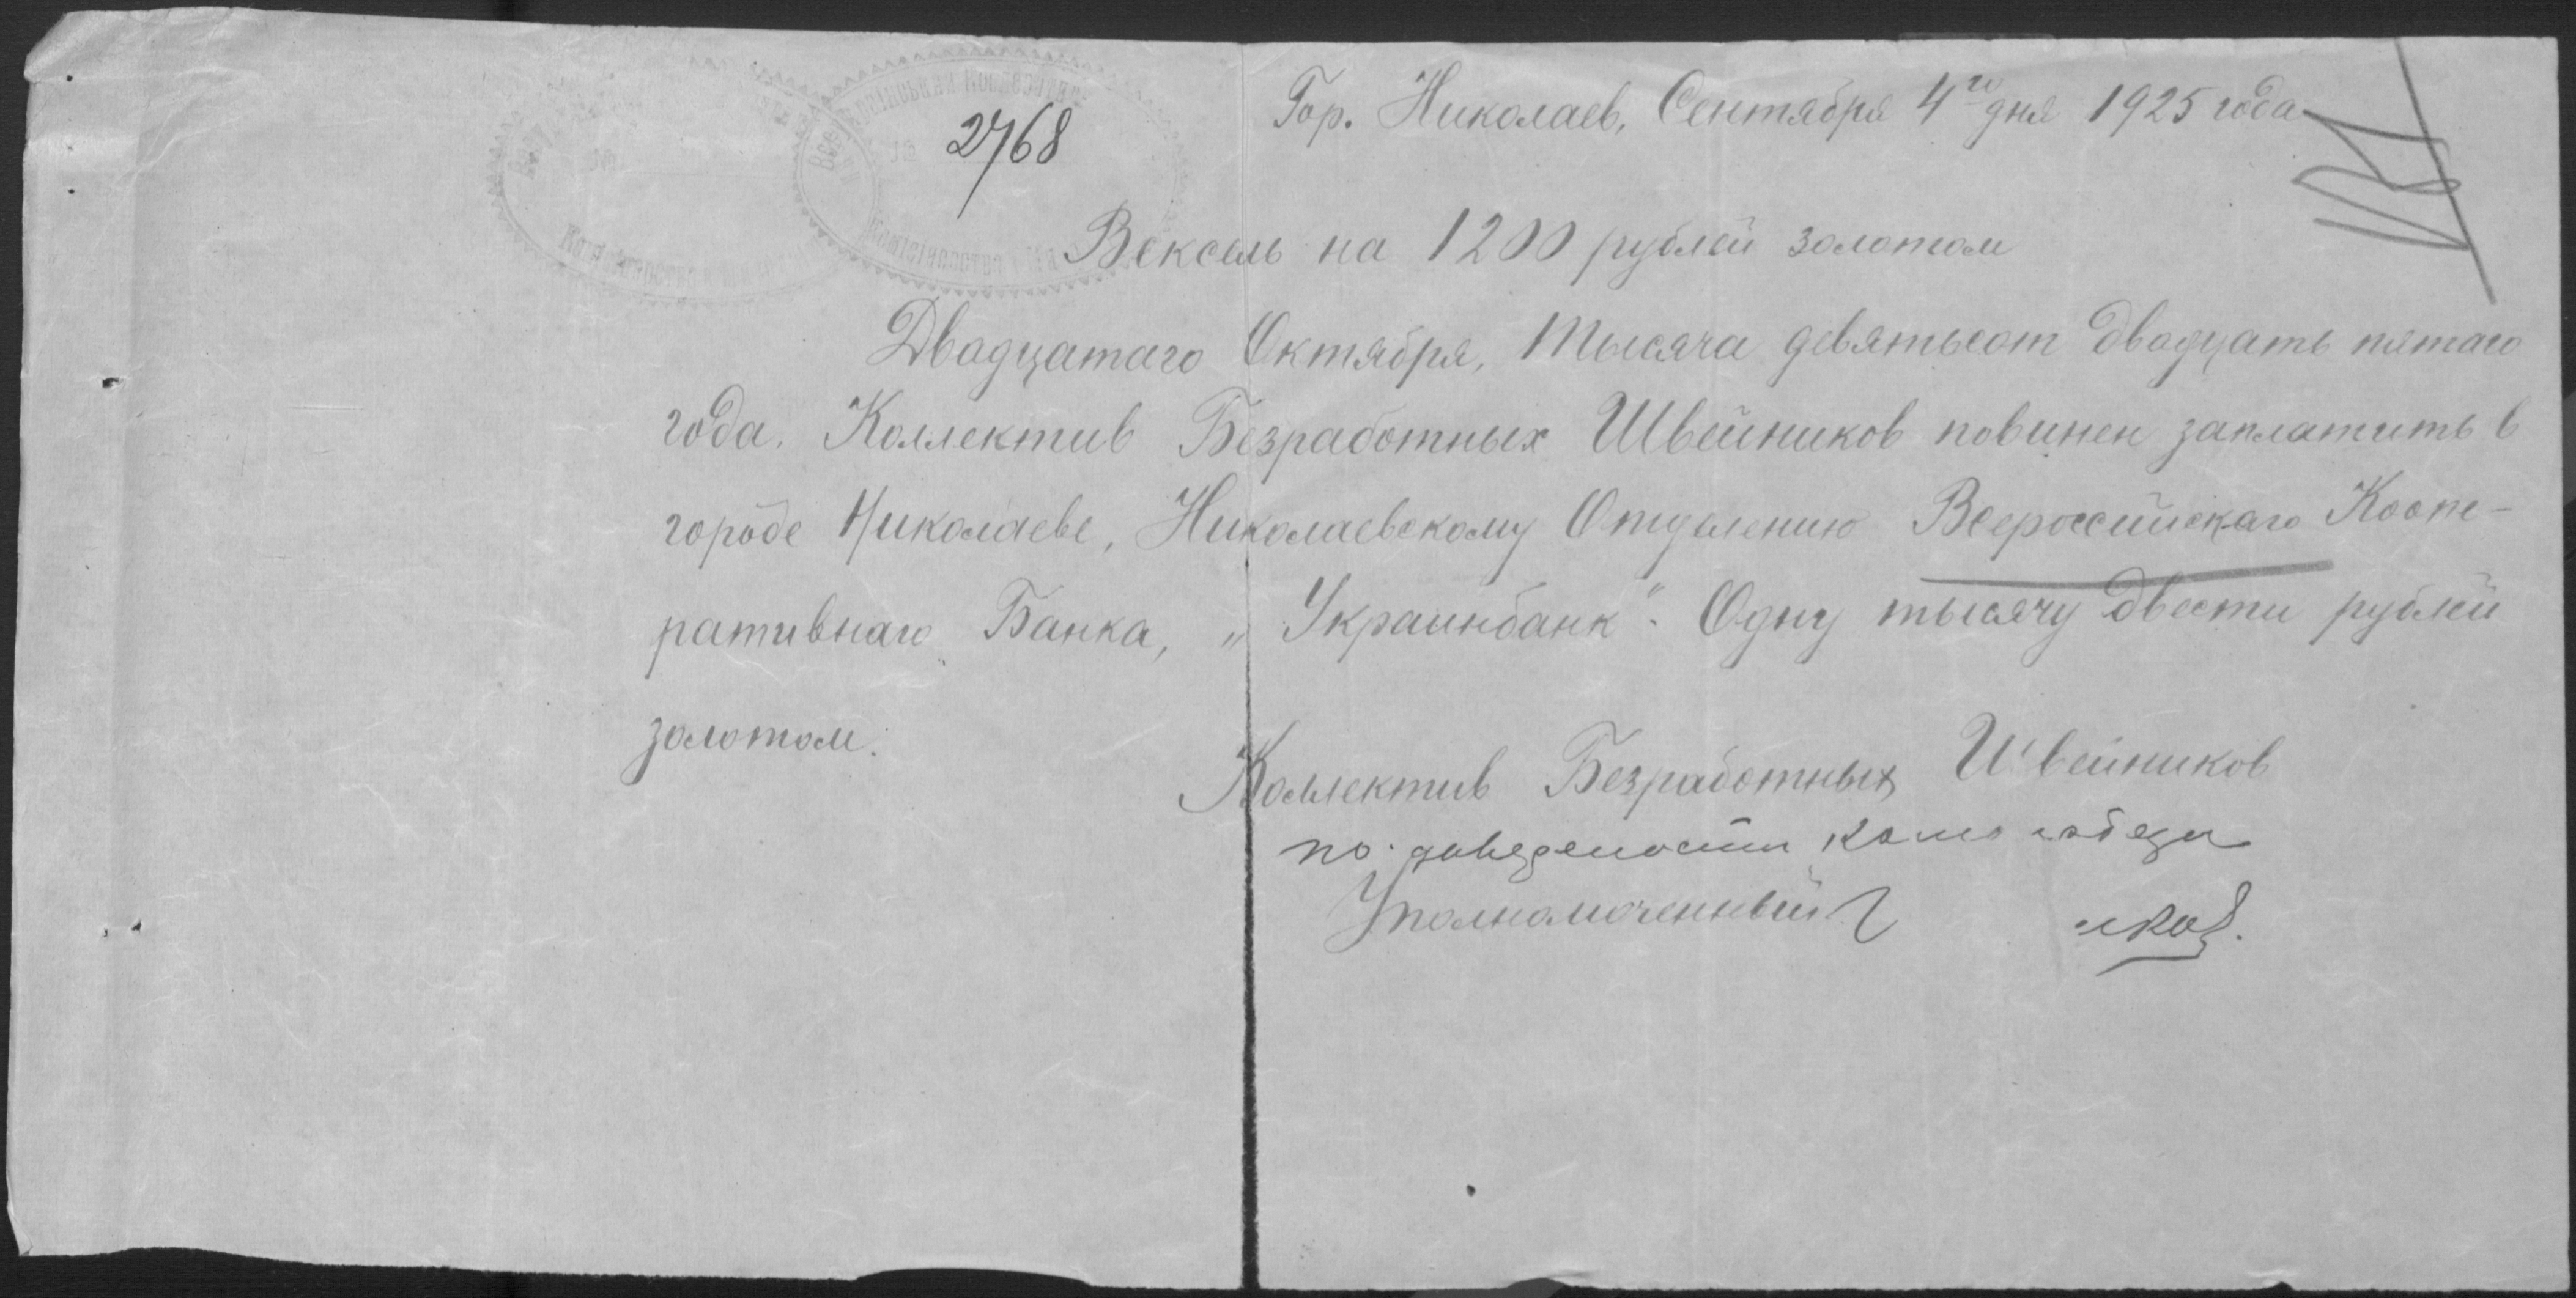 2768
Гор. Николаев, Сентября 4го дня 1925 года
Вексель на 1200 рублей золотом
Двадцатаго Октября, Тысяча девятьсот двадцать пятаго
года. Коллектив Безработных Швейников повинен заплатить в
городе Николаеве, Николаевскому Отделению Всероссийскаго Коопе-
ративнаго Банка, „Украинбанк". Одну тысячу двести рублей
золотом.
Коллектив Безработных Швейников
по
Уполномоченный